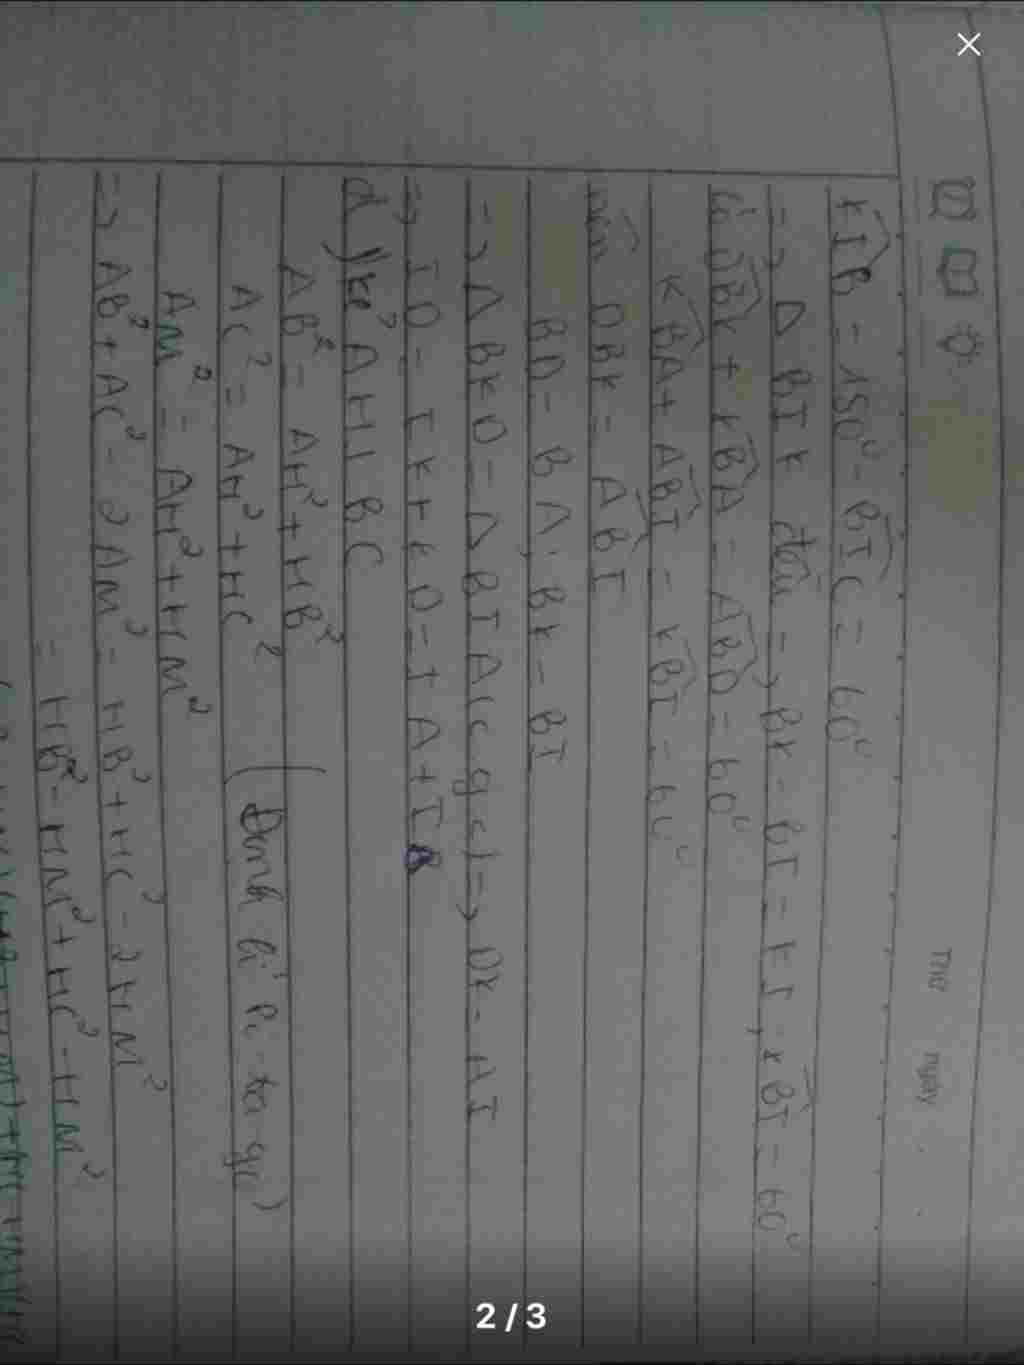 Thứ ngày
KIB = 180° - BIC = 60°
=> Δ BIK đều => BK = BI = KI, KBI = 60°
Có DBK + KBA = ABD = 60°
KBA + ABI = KBI = 60°
nên DBK = ABI
BD = BA; BK = BI
=> Δ BKD = Δ BIA (c g c) => DK = AI
=> ID = IK + KD = IA + IB
d) kẻ AH ⊥ BC
AB² = AH² + HB²
AC² = AH² + HC² (Định lí Pi-ta-go)
AM² = AH² + HM²
=> AB² + AC² - 2AM² = HB² + HC² - 2HM²
= HB² - HM² + HC² - HM²
2 / 3